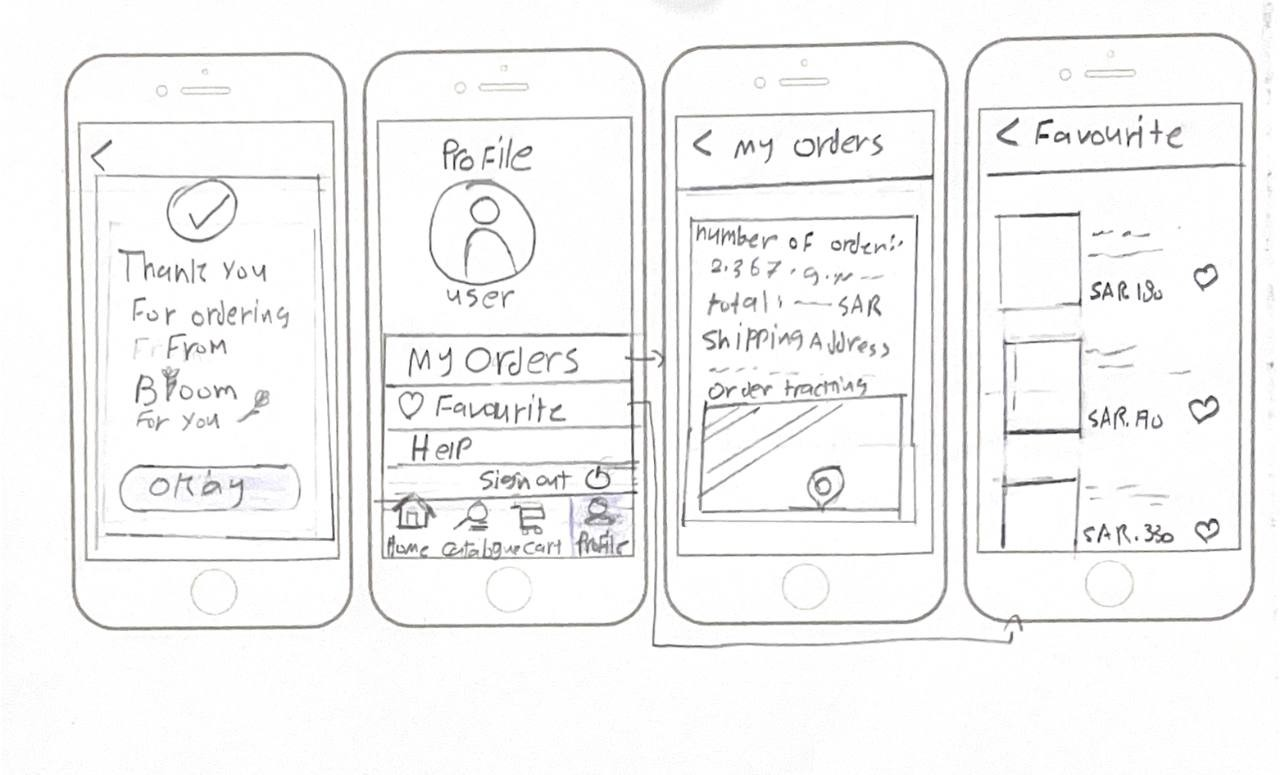 Thank you
For ordering
From
Bloom
For you
okay
Profile
user
My Orders
Favourite
Help
Sign out
Home
Catalogue
cart
Profile
< My orders
number of order:
total: SAR
Shipping Address
order tracking
< Favourite
SAR.
SAR.
SAR. 330